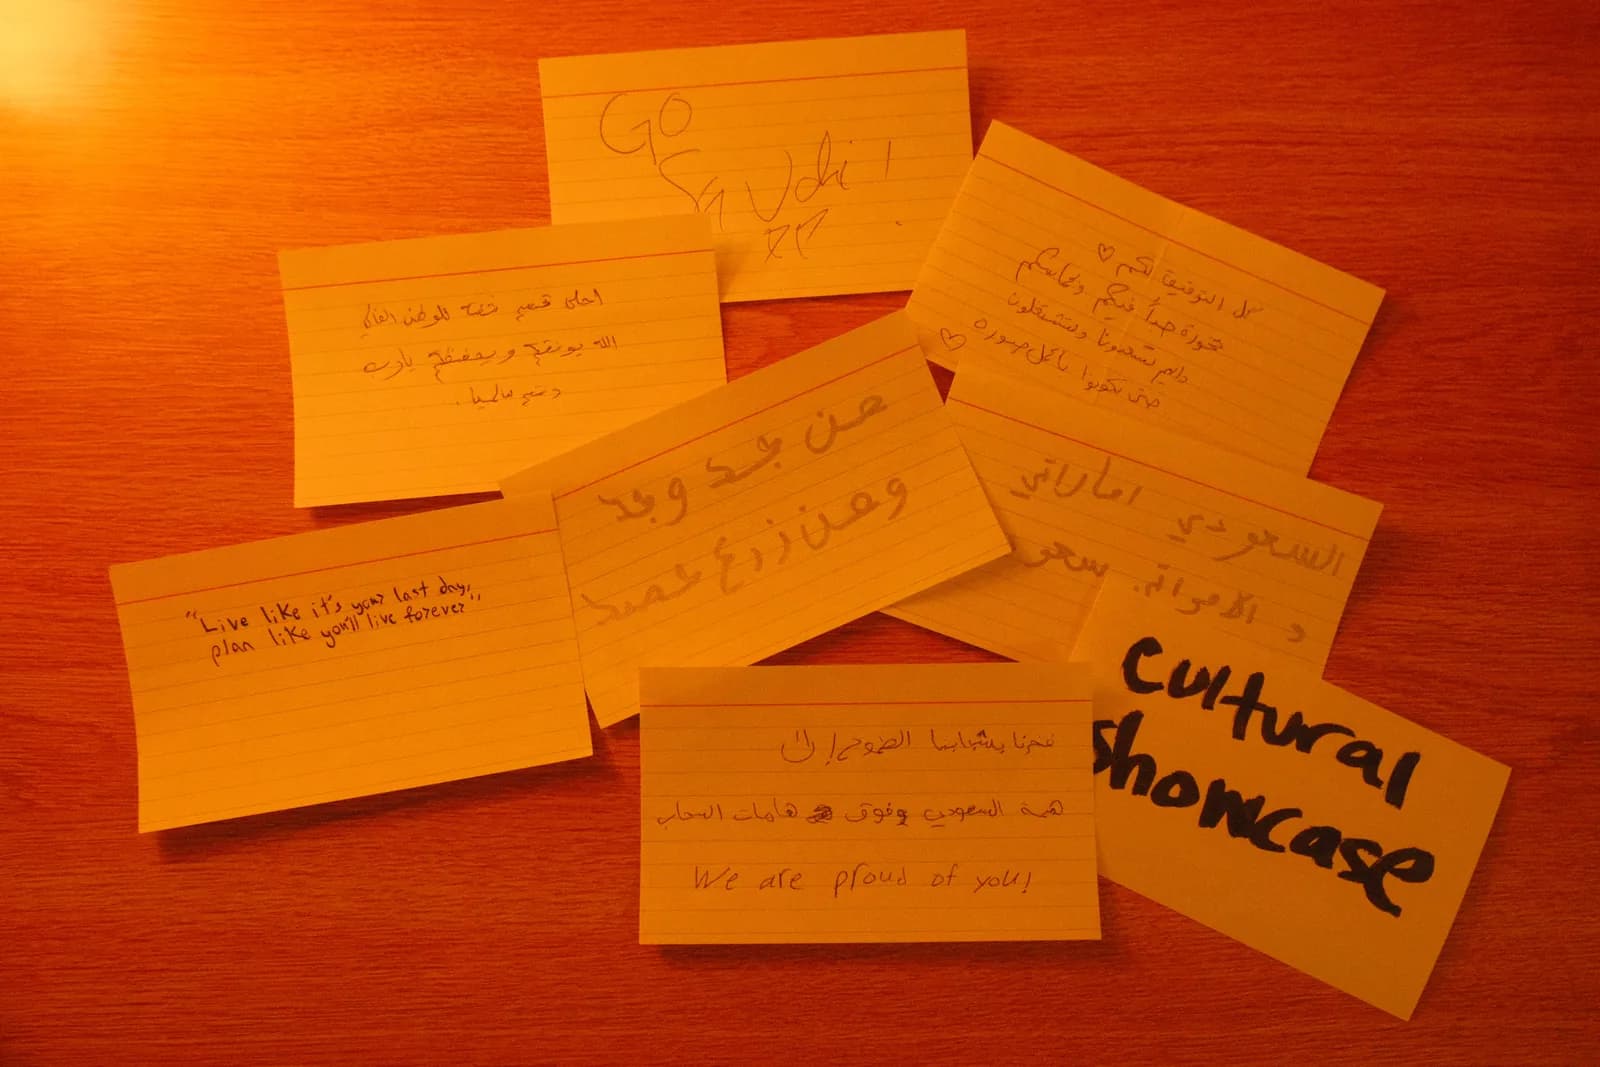 GO
Saudi!
كل التوفيق لكم ♡
فخورة جداً فيكم وبحماسكم
دايم تسعون وتشتغلون
حتى تكونوا بأكمل صورة ♡
احلى قسم خدمة للوطن الغالي
الله يوفقكم ويحفظكم يارب
دمتم سالمين.
من جد وجد
ومن زرع حصد
السعودي اماراتي
و الاماراتي سعو
"Live like it's your last day,
plan like you'll live forever"
فخرنا بشبابنا الطموح!
همة السعودي وفوق هامات السحاب
We are proud of you!
Cultural
Showcase